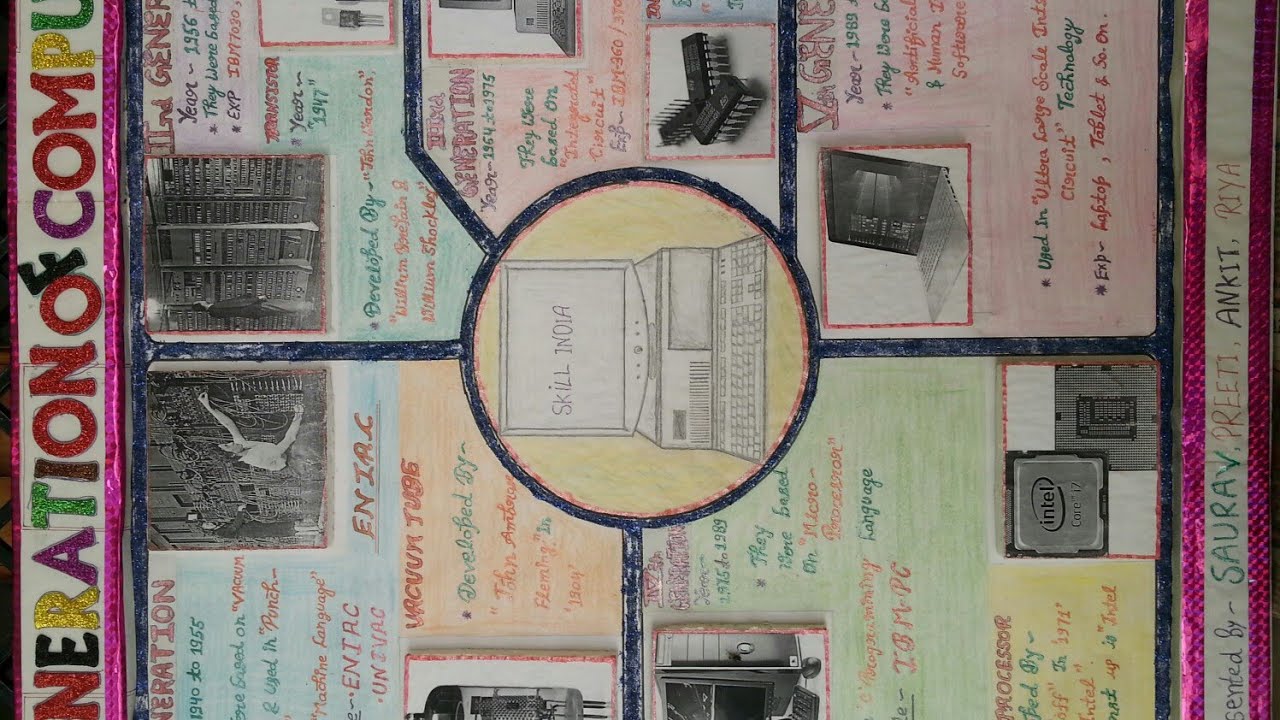 NERATION OF COMPU
NERATION
1940 to 1955
based on "VACUUM
& Used in "Punch-
"Machine Language"
ENIAC
UNIVAC
ENIAC
VACUUM TUBE
* Developed By-
"John Ambrose
Fleming" in
"1904"
IInd GENER
Year- 1956 t
* They Were based
* EXP IBM7030,
TRANSISTOR
* Year-
"1947"
* Developed By- "John Bardon"
"William Shockley"
IIIrd
GENERATION
Year-1964 to 1975
They Were
based On
"Integrated
Circuit"
Exp- IBM-360/370
SKILL INDIA
IVth
GENERATION
Year-
1975 to 1989
* They
Were based
On "Micro-
Processor"
"C" Programming Language
IBM-PC
intel
Core i7
PROCESSOR
By-
off" in 1971
Intel"
up is "Intel
Vth GENER
Year-1989 t
* They Were b
"Artificial
& Human I
Software
* Used in "Ultra Large Scale Inte
Circuit" Technology
* Exp- Laptop, Tablet & So. On.
sented By- SAURAV, PREETI, ANKIT, RIYA